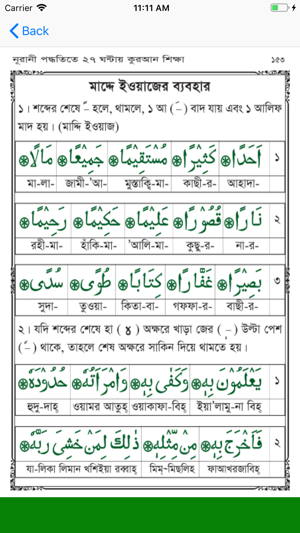 Carrier 11:11 AM
Back
নূরানী পদ্ধতিতে ২৭ ঘন্টায় কুরআন শিক্ষা ১৫৩
মাদ্দে ইওয়াজের ব্যবহার
১। শব্দের শেষে ـً হলে, থামলে, ১ আ (ـَ) বাদ যায় এবং ১ আলিফ
মাদ হয়। (মাদ্দি ইওয়াজ)
১ اَحَدًا ۞ كَثِيْرًا ۞ مُسْتَقِيْمًا ۞ جَمِيْعًا ۞ مَالًا ۞
মা-লা- জামী-'আ- মুস্তাকি্ব-মা- কাছী-র- আহাদা-
২ نَارًا ۞ قُصُوْرًا ۞ عَلِيْمًا ۞ حَكِيْمًا ۞ رَحِيْمًا ۞
রহী-মা- হাকি-মা- 'আলি-মা- কুছু-র- না-র-
৩ بَصِيْرًا ۞ غَفَّارًا ۞ كِتَابًا ۞ طُوًى ۞ سُدًى ۞
সুদা- তুওয়া- কিতা-বা- গফফা-র- বাছী-র-
২। যদি শব্দের শেষে হা (ه) অক্ষরে খাড়া জের (ـٖ) উল্টা পেশ
(ـٗ) থাকে, তাহলে শেষ অক্ষরে সাকিন দিয়ে থামতে হয়।
১ يَعْلَمُوْنَ بِهٖ ۞ وَكَفٰى بِهٖ ۞ وَامْرَاَتُهٗ ۞ حُدُوْدَهٗ ۞
হুদু-দাহ্ ওয়ামর আতুহ্ ওয়াকাফা-বিহ্ ইয়া'লামু-না বিহ্
২ فَاَخْرَجَ بِهٖ ۞ مِنْ مِّثْلِهٖ ۞ ذٰلِكَ لِمَنْ خَشِىَ رَبَّهٗ ۞
যা-লিকা লিমান খশিইয়া রব্বাহ্ মিম্-মিছলিহ ফাআখরজাবিহ্